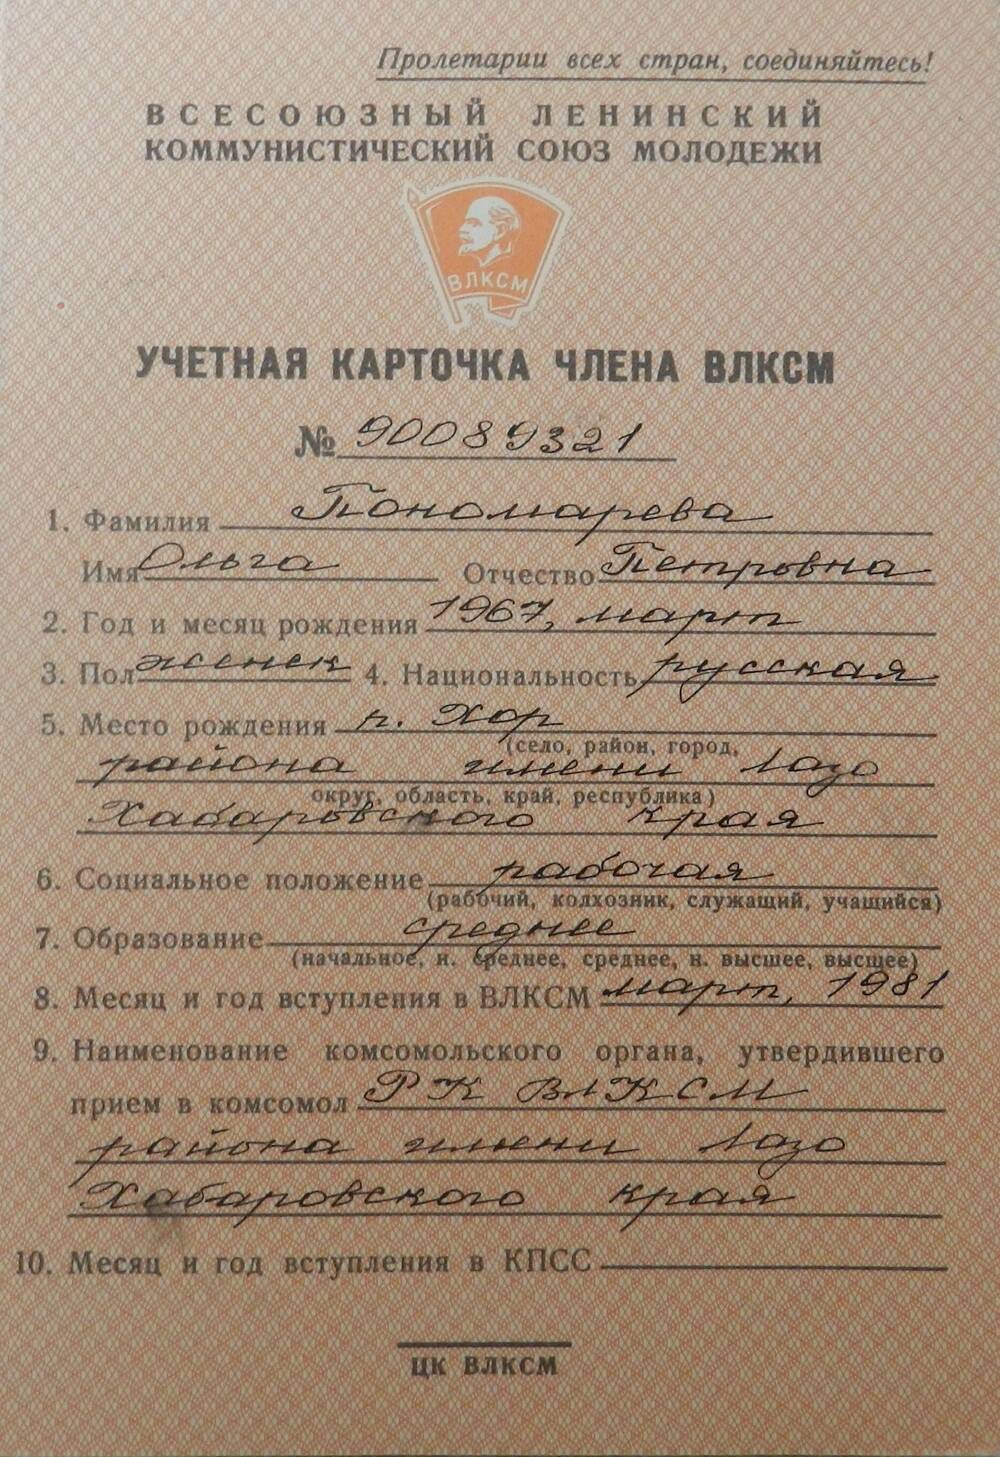 Пролетарии всех стран, соединяйтесь!
ВСЕСОЮЗНЫЙ ЛЕНИНСКИЙ
КОММУНИСТИЧЕСКИЙ СОЮЗ МОЛОДЕЖИ
ВЛКСМ
УЧЕТНАЯ КАРТОЧКА ЧЛЕНА ВЛКСМ
№ 90089321
1. Фамилия Пономарева
Имя Ольга Отчество Петровна
2. Год и месяц рождения 1967, март
3. Пол женск 4. Национальность русская
5. Место рождения п. Хор
(село, район, город,
района имени Лазо
округ, область, край, республика)
Хабаровского края
6. Социальное положение рабочая
(рабочий, колхозник, служащий, учащийся)
7. Образование среднее
(начальное, н. среднее, среднее, н. высшее, высшее)
8. Месяц и год вступления в ВЛКСМ март, 1981
9. Наименование комсомольского органа, утвердившего
прием в комсомол РК ВЛКСМ
района имени Лазо
Хабаровского края
10. Месяц и год вступления в КПСС
ЦК ВЛКСМ